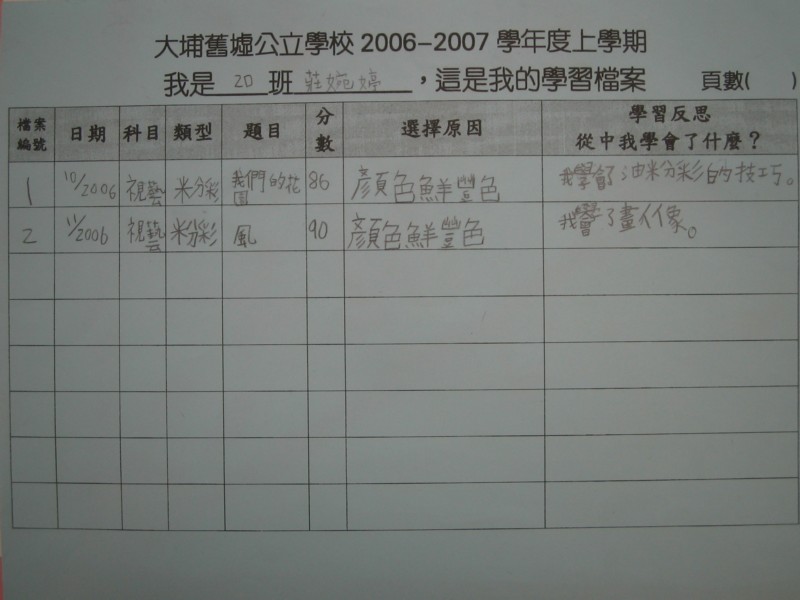 大埔舊墟公立學校 2006-2007 學年度上學期
我是 2D 班 莊婉婷 ,這是我的學習檔案 頁數( )
檔案編號 日期 科目 類型 題目 分數 選擇原因 學習反思 從中我學會了什麼?
1 10/2006 視藝 粉彩 我們的花園 86 顏色鮮豐色 我學會了油粉彩的技巧。
2 11/2006 視藝 粉彩 風 90 顏色鮮豐色 我學會了畫人像。